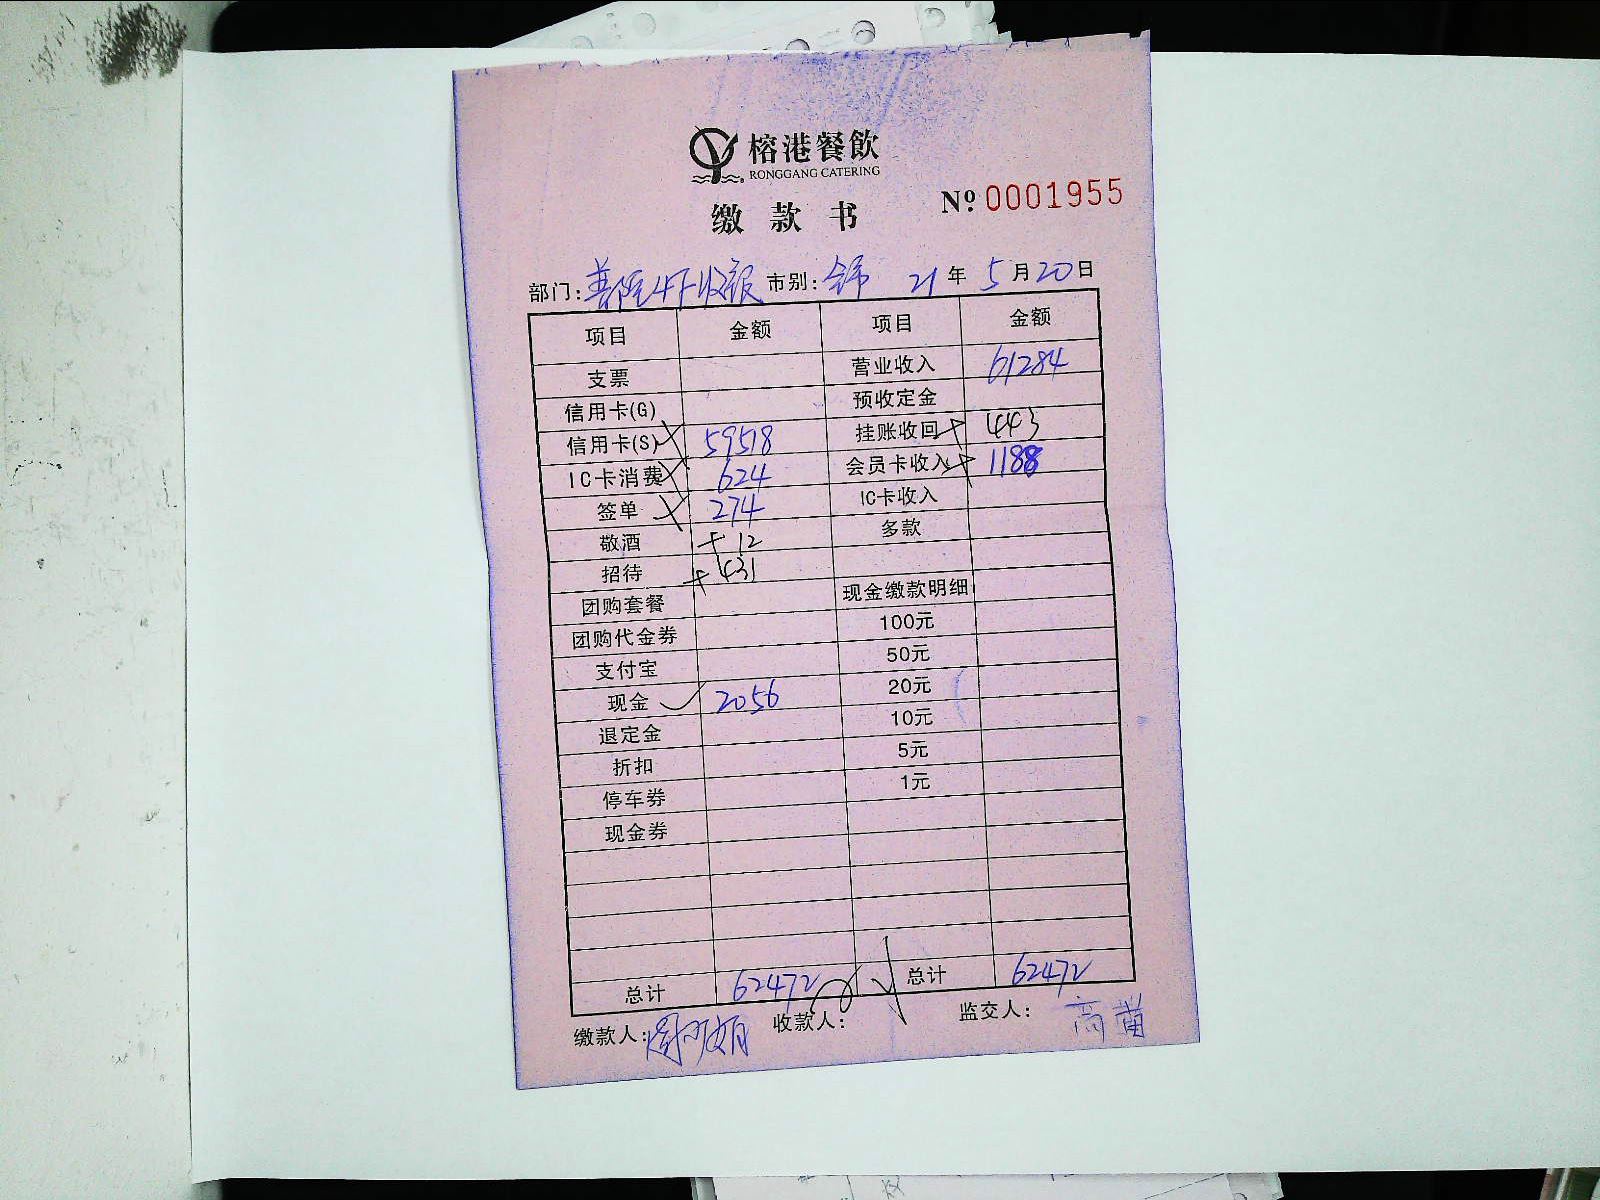 榕港餐飲
RONGGANG CATERING
缴款书
№ 0001955
部门: 4F收银 市别: 21年5月20日
项目 金额 项目 金额
支票 营业收入 61284
信用卡(G) 预收定金
信用卡(S) 59518 挂账收回 + 443
IC卡消费 624 会员卡收入 + 1188
签单 274 IC卡收入
敬酒 + 12 多款
招待 + 431
团购套餐 现金缴款明细
团购代金券 100元
支付宝 50元
现金 ✓ 2056 20元
退定金 10元
折扣 5元
停车券 1元
现金券
总计 62472 总计 62472
缴款人: 收款人: 监交人: 高